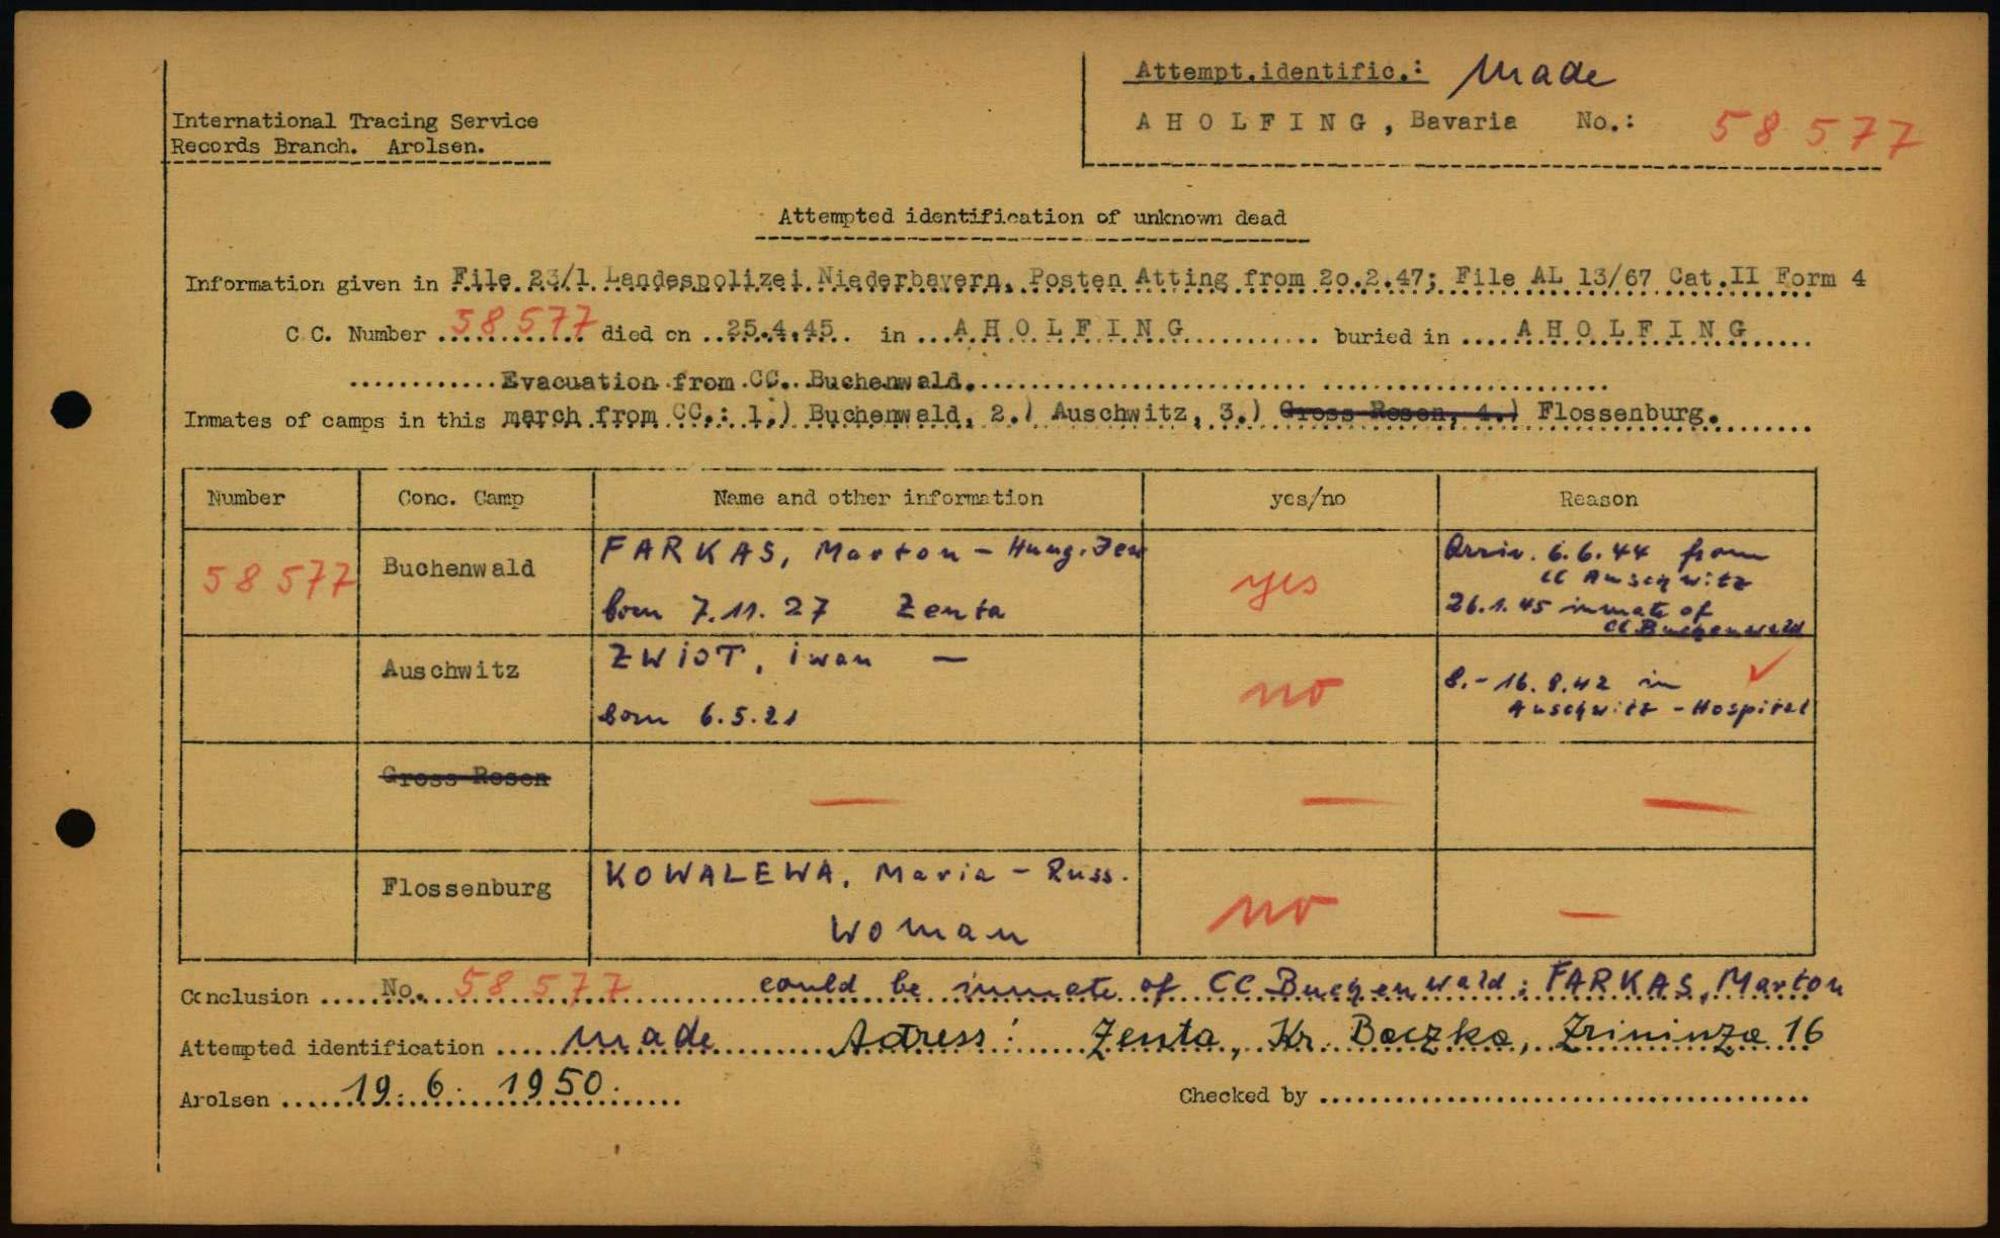 Attempt.identific.: Made
AHOLFING, Bavaria No.: 58 577
International Tracing Service
Records Branch. Arolsen.
Attempted identification of unknown dead
Information given in File 23/1 Landespolizei Niederbayern, Posten Atting from 2o.2.47; File AL 13/67 Cat.II Form 4
C.C. Number 58 577 died on 25.4.45 in AHOLFING buried in AHOLFING
Evacuation from CC. Buchenwald.
Inmates of camps in this march from CC.: 1.) Buchenwald, 2.) Auschwitz, 3.) Gross Rosen, 4.) Flossenburg.
Number Conc. Camp Name and other information yes/no Reason
58 577 Buchenwald FARKAS, Marton - Hung. Jew yes Arriv. 6.6.44 from
CC Auschwitz
born 7.11.27 Zenta 26.1.45 inmate of
CC Buchenwald
Auschwitz ZWIOT, iwan — no
born 6.5.21 8.-16.8.42 in
Auschwitz - Hospital
Gross Rosen — — —
Flossenburg KOWALEWA, Maria - Russ. no —
Woman
Conclusion No. 58 577 could be inmate of CC Buchenwald: FARKAS, Marton
Attempted identification made Adress: Zenta, Kr. Baczka, 16
Arolsen 19.6.1950. Checked by